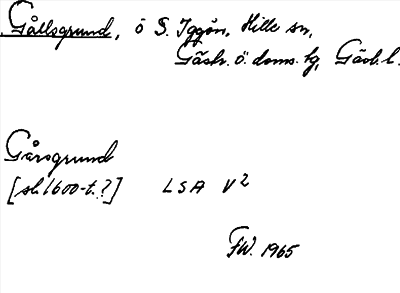 Gållsgrund, ö S. Iggön, Hille sn,
Gästr. ö. doms. hg, Gävl. l.
Gårsgrund
[sl. 1600-t.?] LSA V2
FW. 1965